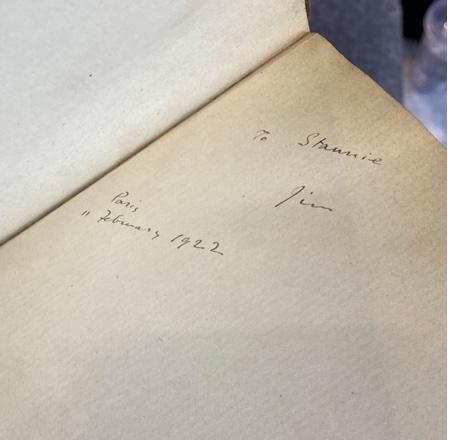 To Stannie
Jim
Paris
11 February 1922